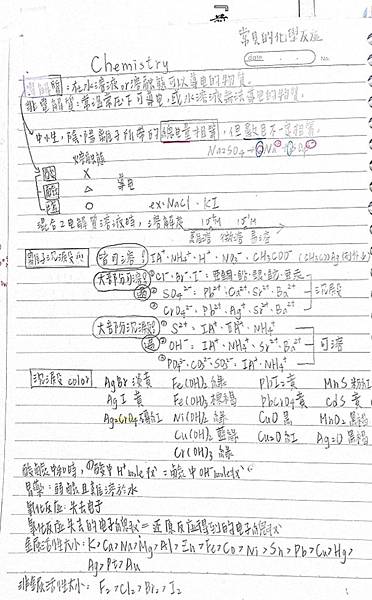 常見的化學反應
Chemistry
date
No.
電解質：在水溶液or熔融態可以導電的物質。
非電解質：常溫常壓下可導電，或水溶液無法導電的物質。
中性，陰、陽離子所帶的總電量相等，但數目不一定相等。
Na2SO4→2Na⁺+SO4²⁻
熔融態
酸 X
鹼 △ 導電
鹽 O ex. NaCl、KI
混合2電解質溶液時，溶解度
難溶 微溶 易溶
離子沉澱反應
皆可溶：IA⁺、NH4⁺、H⁺、NO3⁻、CH3COO⁻
大部分可溶
① Cl⁻、Br⁻、I⁻：
② SO4²⁻：Pb²⁺、Ca²⁺、Sr²⁺、Ba²⁺
沉澱
③ CrO4²⁻：Pb²⁺、Ag⁺、Sr²⁺、Ba²⁺
大部分沉澱
① S²⁻：IA⁺、NH4⁺
② OH⁻：IA⁺、NH4⁺、Sr²⁺、Ba²⁺
可溶
③ PO4³⁻、CO3²⁻、SO3²⁻：IA⁺、NH4⁺
沉澱 color
AgBr 淡黃 Fe(OH)2 綠 PbI2 黃 MnS 粉紅
AgI 黃 Fe(OH)3 PbCrO4 黃 CdS 黃
Ag2CrO4 磚紅 Ni(OH)2 綠 CuO 黑 MnO2 黑褐
Cu(OH)2 藍綠 Cu2O 紅 Ag2O 黑褐
Cr(OH)3 綠
酸鹼中和時，酸中H⁺mole數=鹼中OH⁻mole數
弱酸且難溶於水
氧化反應：失去電子
氧化反應失去的電子總數=還原反應得到的電子總數
金屬活性大小：K>Ca>Na>Mg>Al>Zn>Fe>Co>Ni>Sn>Pb>Cu>Hg>
Ag>Pt>Au
非金屬活性大小：F2>Cl2>Br2>I2